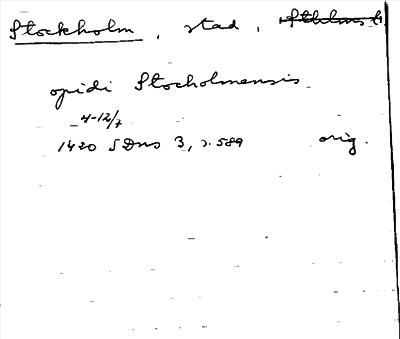 Stockholm, stad, Sthlms l
opidi Stocholmensis
4-12/7
1420 SDns 3, s. 589 orig.